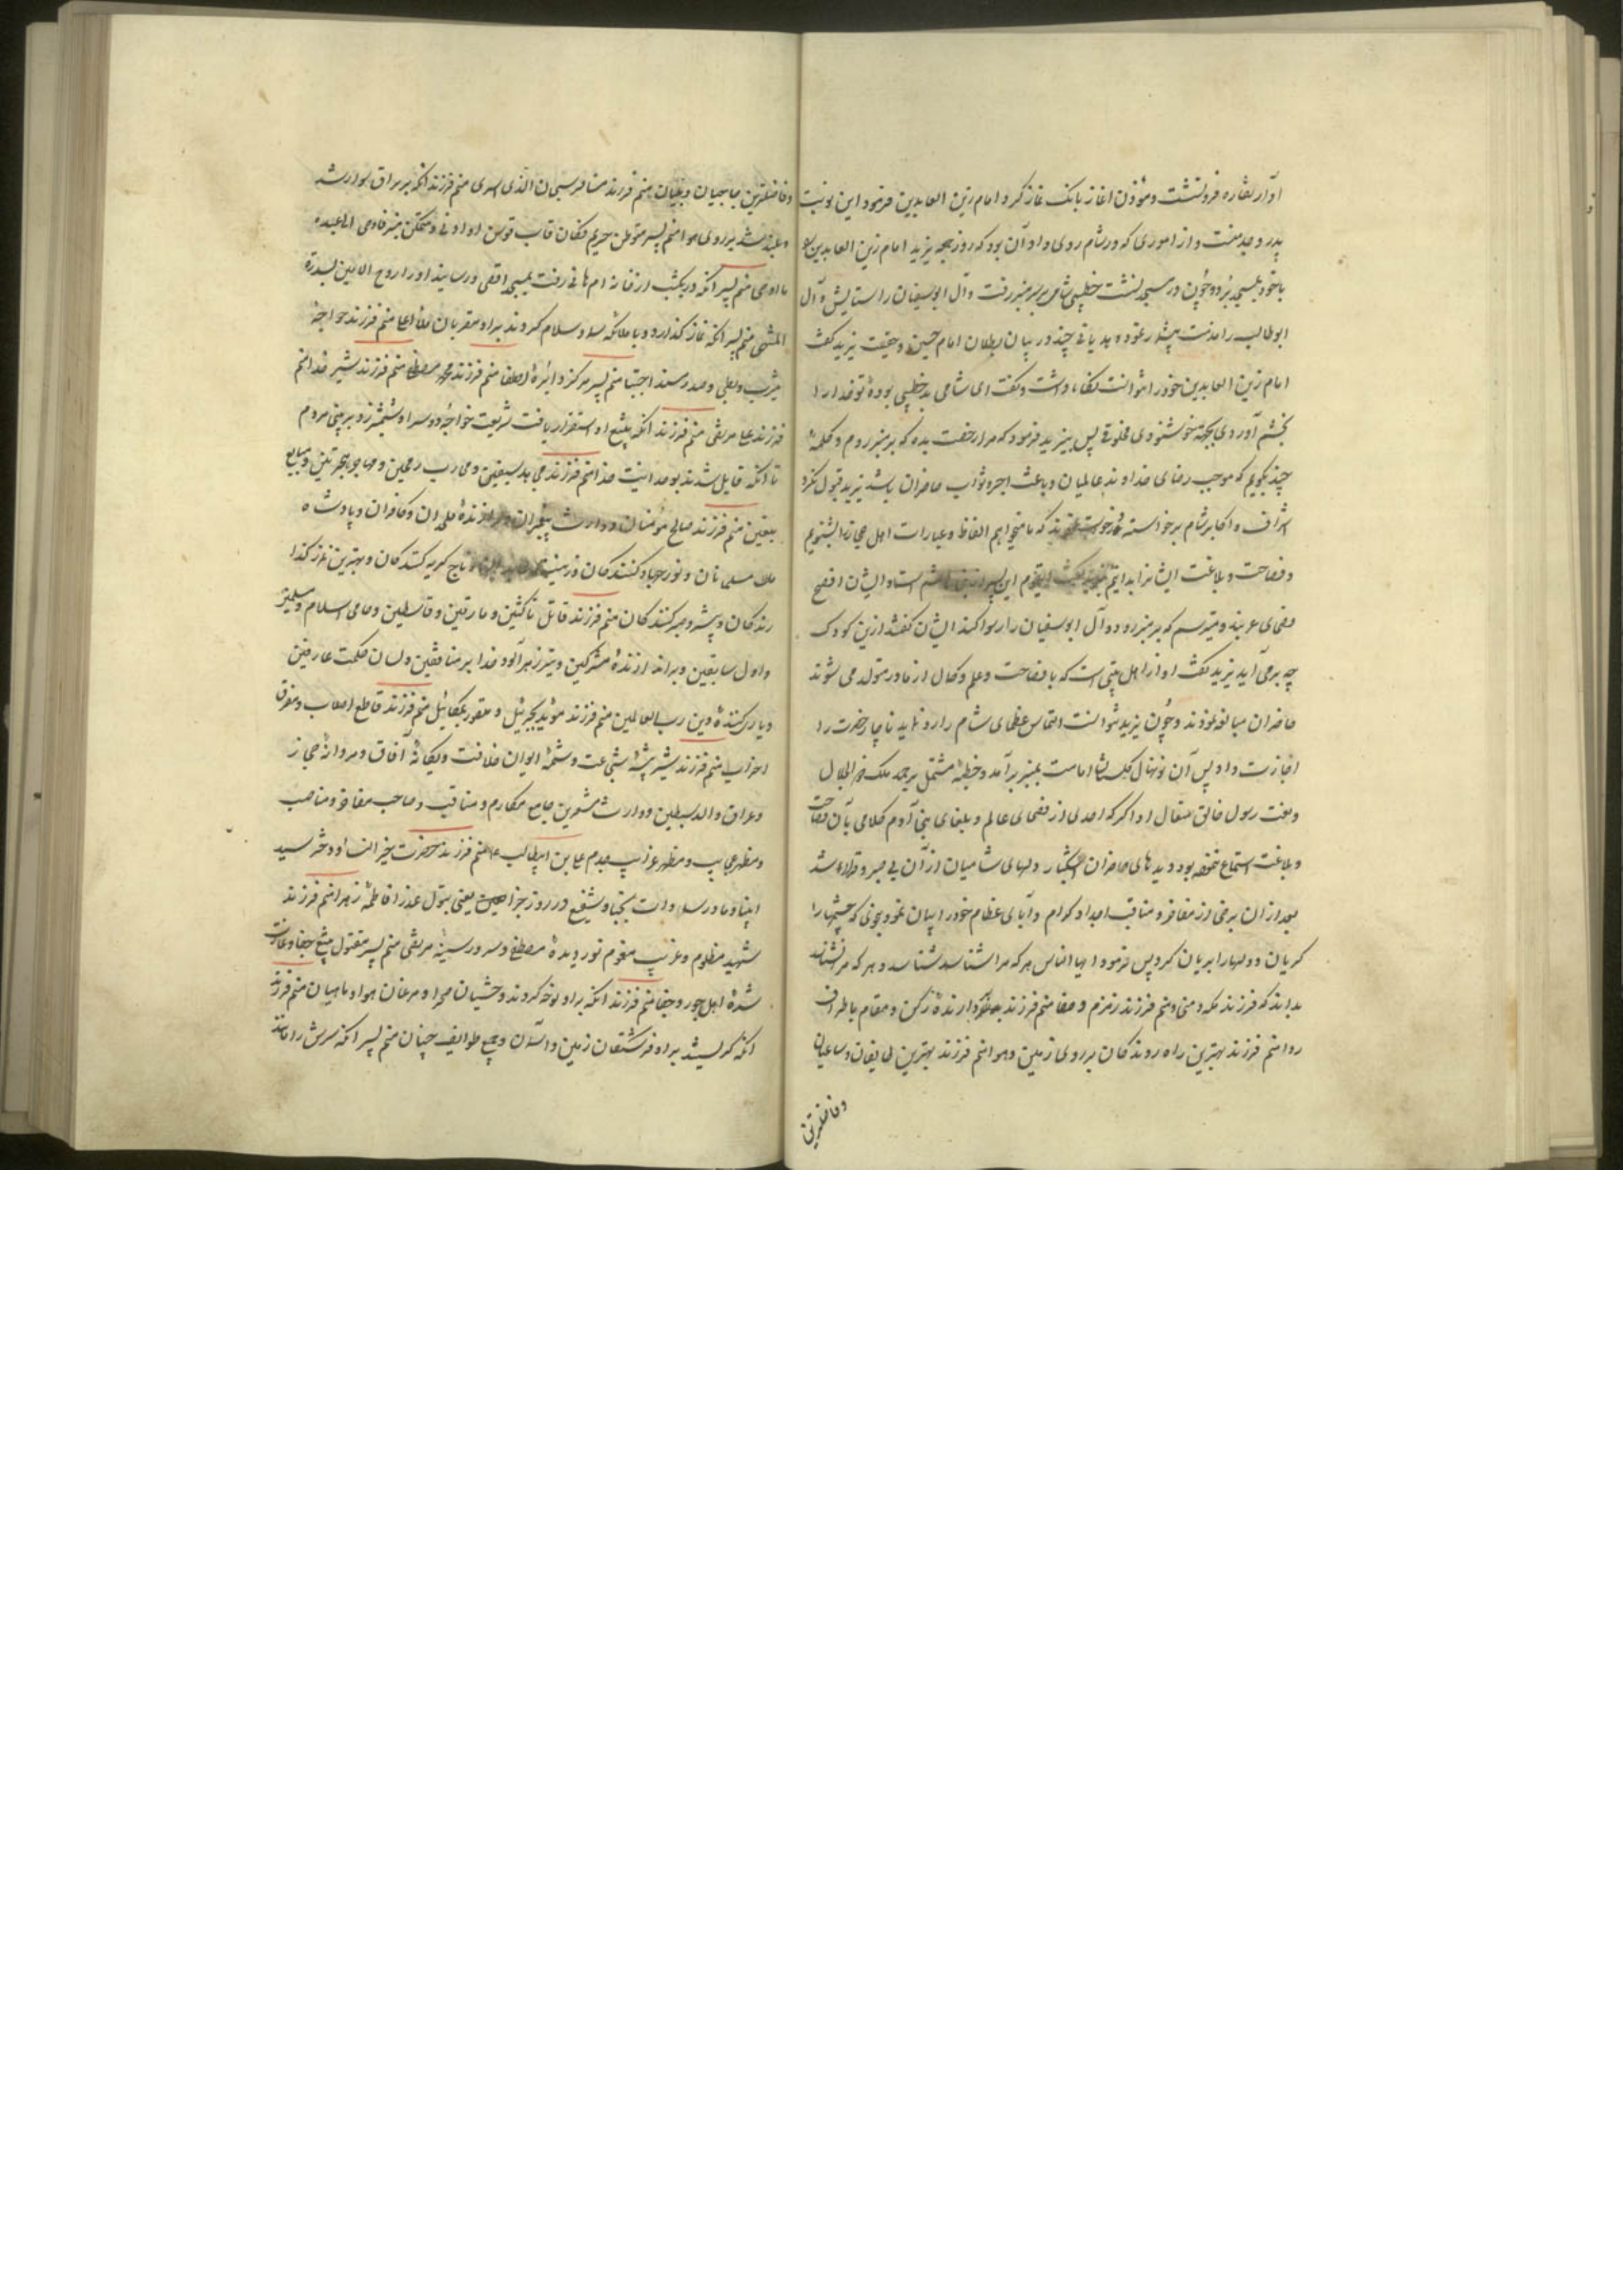 آواز نقاره فرونشست و مؤذن اغاز بانک نماز کرد امام زین العابدین فرمود این نوبت
پدر و جد منست و از اموری که در شام روی داد آن بود که روز جمعه یزید امام زین العابدین را
باخود بمسجد برد و چون در مسجد نشست خطیبی شامی بر سر منبر رفت و آل ابوسفیان را ستایش و آل
ابوطالب را مذمت نموده هذیانی چند در بیان بطلان امام حسین و حقیت یزید گفت
امام زین العابدین خودرا نتوانست نگاه داشت و گفت ای شامی بد خطیبی بوده تو خدا را
بخشم آوردی بجهة خوشنودی مخلوقی پس بیزید فرمود که مرا رخصت بده که بر منبر روم و کلمهٔ
چند بگویم که موجب رضای خداوند عالمیان و باعث اجر و ثواب حاضران باشد یزید قبول نکرد
اشراف و اکابر شام برخواسته درخواست نمودند که ما میخواهیم الفاظ و عبارات اهل حجاز را بشنویم
و فصاحت و بلاغت ایشانرا بدانیم یزید گفت ایقوم این پسر از بنی هاشم است و ایشان افصح
فصحای عربند و میترسم که بر منبر رود و آل ابوسفیان را رسوا کند ایشان گفتند ازین کودک
چه برمی آید یزید گفت او از اهل بیتی است که با فصاحت و علم و کمال از مادر متولد می شوند
حاضران مبالغه نمودند و چون یزید نتوانست التماس عظمای شام را رد نماید ناچار حضرت را
اجازت داد پس آن نونهال گلستان امامت بمنبر برآمد و خطبهٔ مشتمل بر حمد ملک ذو الجلال
و نعت رسول خالق متعال ادا کرد که احدی از فصحای عالم و بلغای بنی آدم کلامی بآن فصاحت
و بلاغت استماع ننموده بود و دیدهای حاضران اشکبار و دلهای شامیان از آن بی صبر و قرار شد
بعد ازان برخی از مفاخر و مناقب اجداد کرام و آبای عظام خود را بیان نمود بنحوی که چشمها را
گریان و دلها را بریان کرد پس فرمود ایها الناس هرکه مرا شناسد شناسد و هرکه مرا نشناسد
بداند که فرزند مکه و منی و منم فرزند زمزم و صفا منم فرزند بردارندهٔ رکن و مقام باطراف
ردا منم فرزند بهترین راه روندگان بر روی زمین و هوا منم فرزند بهترین طایفان و ساعیان
و فاضلترین
و فاضلترین حاجیان و ملبیان منم فرزند سبحان الذی اسری منم فرزند آنکه بر براق سوار شد
و بلند شد بر روی هوا منم پسر متوطن حریم فکان قاب قوسین او ادنی و متمکن منبر فاوحی الی عبده
ما اوحی منم پسر آنکه در یکشب از خانه ام هانی رفت بمسجد اقصی و رسانید او را روح الامین بسدرة
المنتهی منم پسر آنکه نماز گذارد و با ملائکه سما و سلام کردند بر او مقربان ملأ اعلی منم فرزند خواجهٔ
یثرب و بطحی و صدر مسند اجتبا منم پسر مرکز دایرهٔ اصطفا منم فرزند محمد مصطفی منم فرزند شیر خدا منم
فرزند علی مرتضی منم فرزند آنکه بتیغ او استقرار یافت شریعت خواجهٔ دوسرا و شمشیر زد بر بینی مردم
تا آنکه قایل شدند بوحدانیت خدا منم فرزند مجاهد بسیفین و محارب رمحین و مهاجر هجرتین و مبایع
بیعتین منم فرزند صالح مؤمنان و وارث پیغمبران و براندازندهٔ ملحدان و کافران و پادشاه
مسلمانان و نور جهاد کنندگان و زینت و تاج گریه کنندگان و بهترین نماز گذا
رندگان و پیشرو صبر کنندگان منم فرزند قاتل ناکثین و مارقین و قاسطین و حامی اسلام و مسلمین
و اول سابقین و براندازندهٔ مشرکین و تیر زهرآلود خدا بر منافقین و لسان حکمت عارفین
و یاری کنندهٔ دین رب العالمین منم فرزند مؤید بجبرئیل و منصور بمیکائیل منم فرزند قاطع اصلاب و مفرق
احزاب منم فرزند شیر بیشهٔ شجاعت و شمع ایوان خلافت و یگانهٔ آفاق و مردانهٔ حجاز
و عراق والد سبطین و وارث مشعرین جامع مکارم و مناقب و صاحب مفاخر و مناصب
و مظهر عجایب و مظهر غرایب جدم علی بن ابیطالب منم فرزند حضرت خیر النساء و دختر سید
انبیا و مادر سادات نجبا و شفیع در روز جزا یعنی بتول عذرا فاطمه زهرا منم فرزند
شهید مظلوم و غریب مغموم نور دیدهٔ مصطفی و سرور سینهٔ مرتضی منم پسر مقتول تیغ جفا و غارت
شدهٔ اهل جور و جفا منم فرزند آنکه بر او نوحه کردند وحشیان صحرا و مرغان هوا و ماهیان منم فرزند
آنکه گریستند بر او فرشتگان زمین و آسمان و جمیع طوایف جنیان منم پسر آنکه سرش را مانند